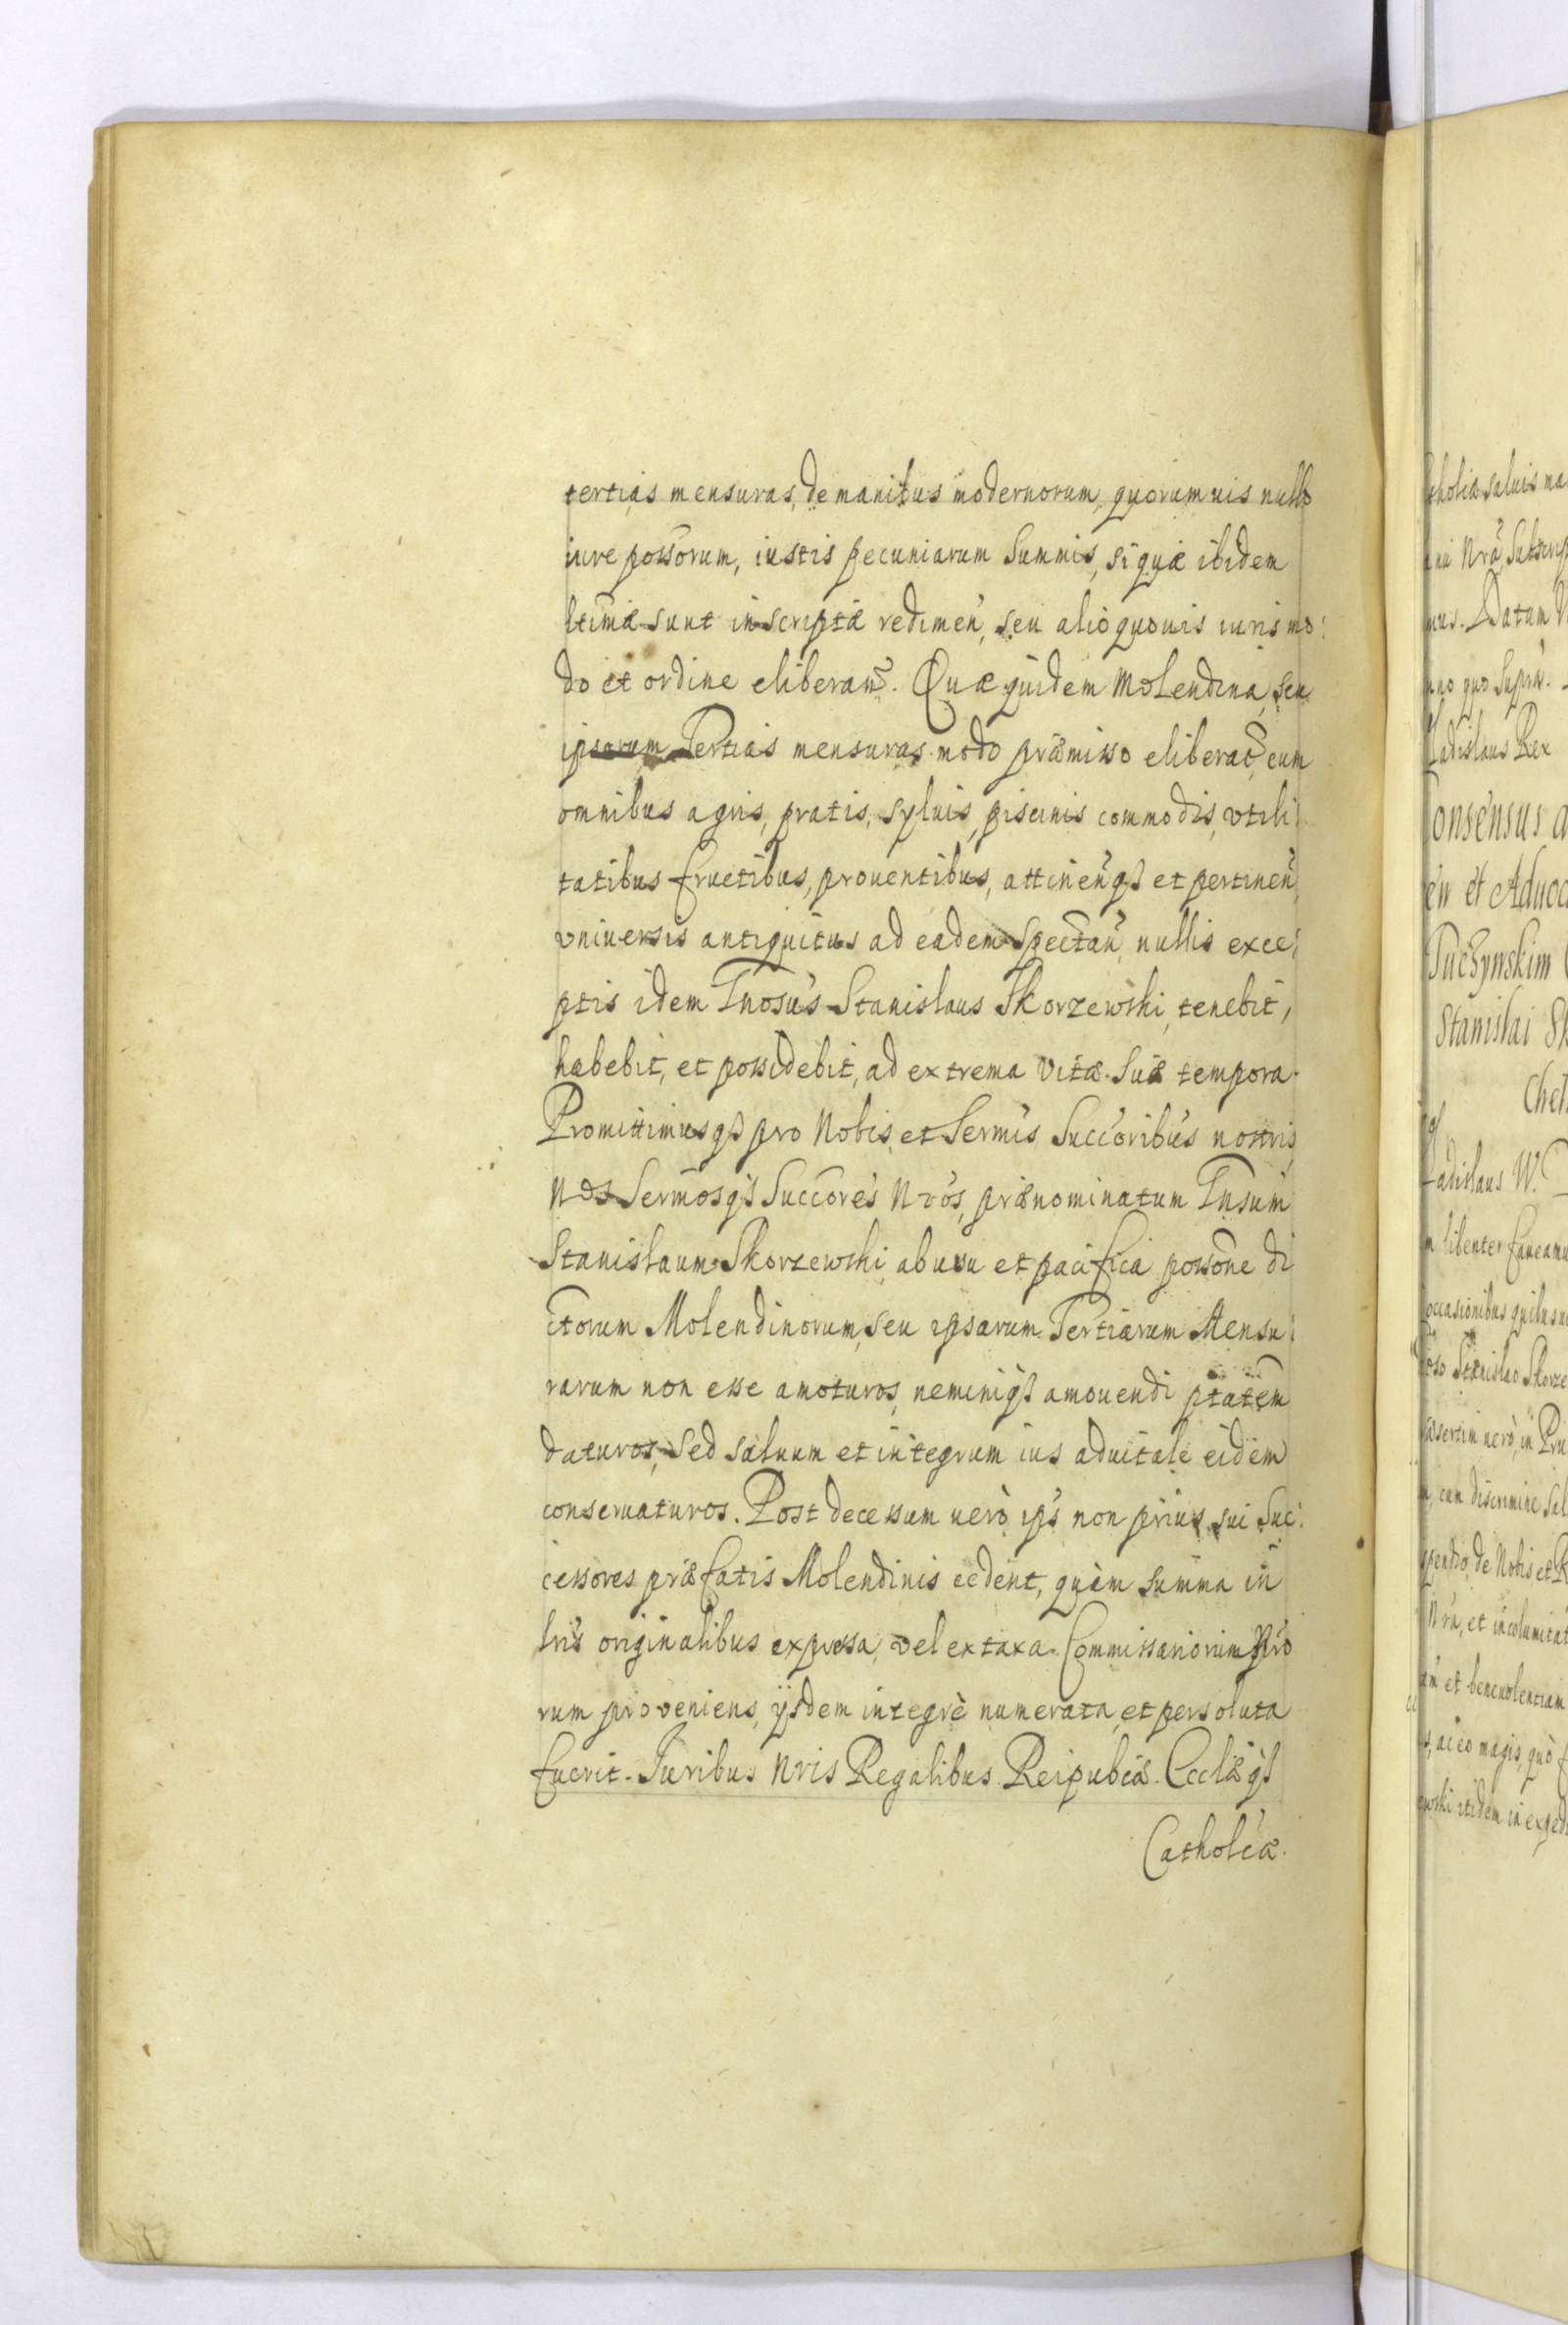 tertias mensuras, de manibus modernorum, quorum uis nullo
iure possorum, iustis pecuniarum Summis, si quæ ibidem
ltimæ sunt inscriptæ redimen̄, seu alio quouis iuris mo:
do et ordine eliberan̄. Quæ quidem Molendina, seu
ipsarum Tertias mensuras modo præmisso eliberat, cum
omnibus agris, pratis, syluis, piscinis commodis, vtili:
tatibus fructibus, prouentibus, attinen̄qȝ et pertinen̄
vniuersis antiquitus ad eadem spectan̄, nullis exce:
ptis idem Gnosus Stanislaus Skorzewski, tenebit,
habebit, et possidebit, ad extrema vitæ suæ tempora.
Promittimusqȝ pro Nobis, et Sermis Succoribus nostris
Nos Sermosqȝ Succores Nros, prænominatum Gnsum
Stanislaum Skorzewski ab usu et pacifica possone di
ctorum Molendinorum, seu ipsarum Tertiarum Mensu:
rarum non esse amoturos, neminiqȝ amouendi ptatem
daturos, sed saluum et integrum ius aduitale eidem
conseruaturos. Post decessum uerò ips non prius sui Suc:
cessores præfatis Molendinis cedent, quàm summa in
lris originalibus expressa, vel ex taxa Commissariorum Nro
rum proueniens, ijsdem integrè numerata, et persoluta
fuerit. Juribus Nris Regalibus Reipubcæ Ecclæqȝ
Catholcæ.
tholicæ saluis ma
nu Nrā Subscrip
mus. Datum
nno quo Suprà.
ladislaus Rex
onsensus a
et Aduoca
Tuczynskim
Stanislai Sk
Chel
ladislaus W.
libenter faueamu
occasionibus quibusu
oso Stanislao Skorze
æsertim uerò, in Pru
cum discrimine
pendio, de Nobis et R
Nrā, et incolumitat
et beneuolentiam
ac eo magis, quò
ewski itidem in exped